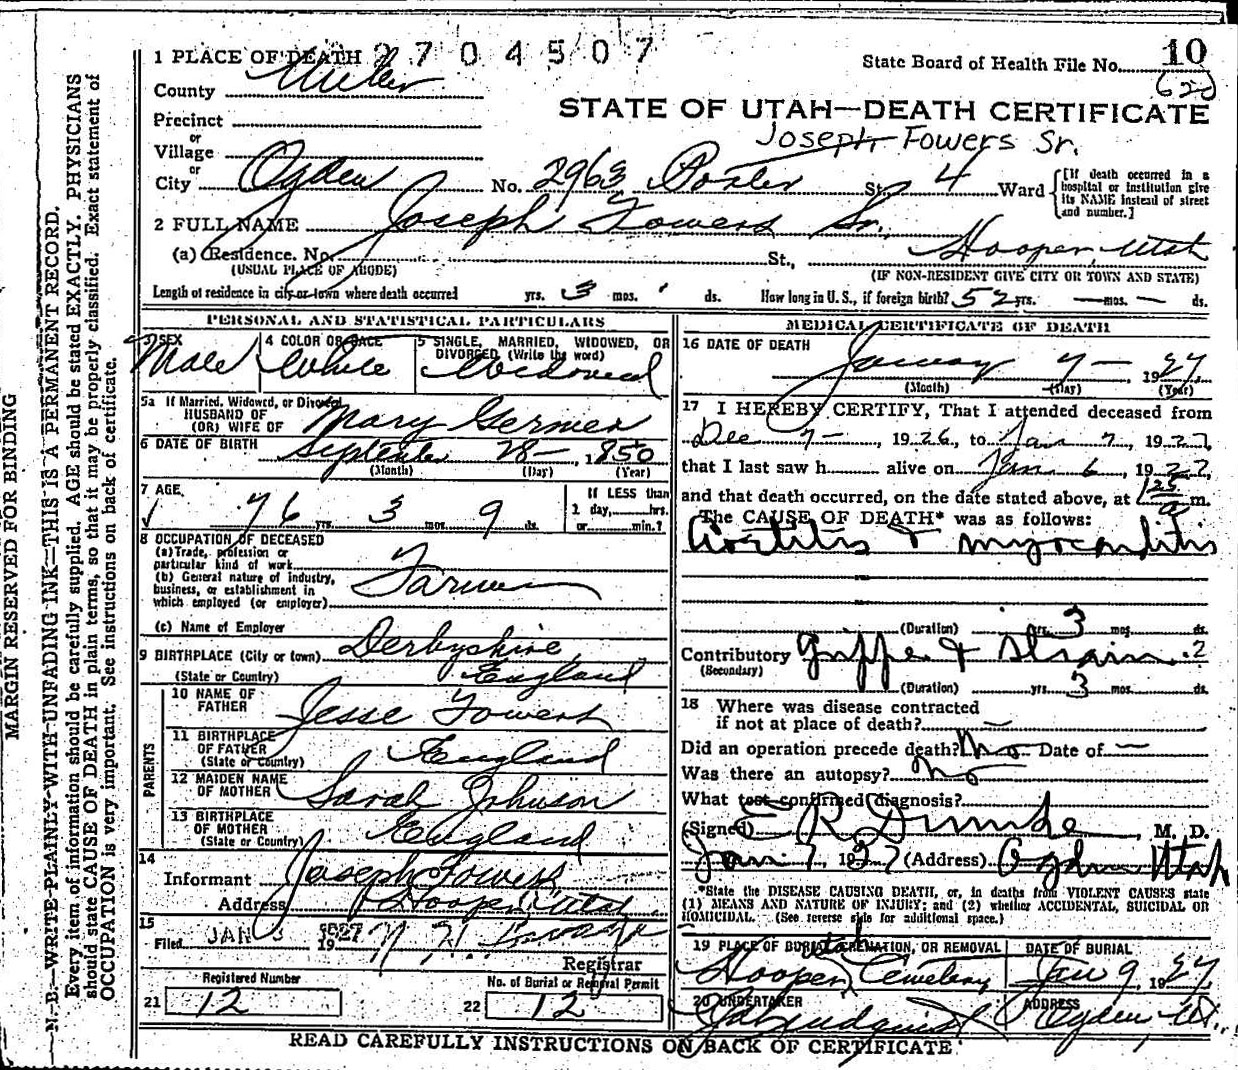 MARGIN RESERVED FOR BINDING
N. B.—WRITE PLAINLY WITH UNFADING INK—THIS IS A PERMANENT RECORD.
Every item of information should be carefully supplied. AGE should be stated EXACTLY. PHYSICIANS
should state CAUSE OF DEATH in plain terms, so that it may be properly classified. Exact statement of
OCCUPATION is very important. See instructions on back of certificate.
2704507
1 PLACE OF DEATH
State Board of Health File No. 10
County Weber
STATE OF UTAH—DEATH CERTIFICATE
Precinct
Joseph Fowers Sr.
or
Village
or
City Ogden No. 2963 Porter St. 4 Ward
[If death occurred in a hospital or institution give its NAME instead of street and number.]
2 FULL NAME Joseph Fowers Sr.
(a) Residence. No. St., Hooper, Utah
(USUAL PLACE OF ABODE) (IF NON-RESIDENT GIVE CITY OR TOWN AND STATE)
Length of residence in city or town where death occurred yrs. 3 mos. ds. How long in U. S., if foreign birth? 52 yrs. — mos. — ds.
PERSONAL AND STATISTICAL PARTICULARS
3 SEX Male
4 COLOR OR RACE White
5 SINGLE, MARRIED, WIDOWED, OR DIVORCED (Write the word) Widowed
5a If Married, Widowed, or Divorced
HUSBAND OF
(OR) WIFE OF Mary Germer
6 DATE OF BIRTH September 28 — 1850
(Month) (Day) (Year)
7 AGE 76 yrs. 3 mos. 9 ds.
If LESS than
1 day, hrs.
or min.?
8 OCCUPATION OF DECEASED
(a) Trade, profession or
particular kind of work
(b) General nature of industry,
business, or establishment in
which employed (or employer) Farmer
(c) Name of Employer
9 BIRTHPLACE (City or town) Derbyshire,
(State or Country) England
PARENTS
10 NAME OF FATHER Jesse Fowers
11 BIRTHPLACE OF FATHER (State or Country) England
12 MAIDEN NAME OF MOTHER Sarah Johnson
13 BIRTHPLACE OF MOTHER (State or Country) England
14
Informant Joseph Fowers
Address Hooper, Utah
15
Filed JAN 8 1927
Registrar
Registered Number
21 12
No. of Burial or Removal Permit
22 12
MEDICAL CERTIFICATE OF DEATH
16 DATE OF DEATH
January 7 — 1927
(Month) (Day) (Year)
17 I HEREBY CERTIFY, That I attended deceased from
Dec 7 —, 1926, to Jan 7, 1927,
that I last saw h alive on Jan 6, 1927,
and that death occurred, on the date stated above, at a m.
The CAUSE OF DEATH* was as follows:
Aortitis & myocarditis
(Duration) yrs. 3 mos. ds.
Contributory Grippe & Strain
(Secondary)
(Duration) yrs. 3 mos. ds.
18 Where was disease contracted
if not at place of death? —
Did an operation precede death? No Date of —
Was there an autopsy? No
What test confirmed diagnosis?
(Signed) E R Dumke, M. D.
Jan 7, 1927 (Address) Ogden Utah
*State the DISEASE CAUSING DEATH, or, in deaths from VIOLENT CAUSES state
(1) MEANS AND NATURE OF INJURY; and (2) whether ACCIDENTAL, SUICIDAL OR
HOMICIDAL. (See reverse side for additional space.)
19 PLACE OF BURIAL, CREMATION, OR REMOVAL
Hooper, Utah Cemetery
DATE OF BURIAL
Jan 9 1927
20 UNDERTAKER
ADDRESS
Ogden, Ut.
READ CAREFULLY INSTRUCTIONS ON BACK OF CERTIFICATE